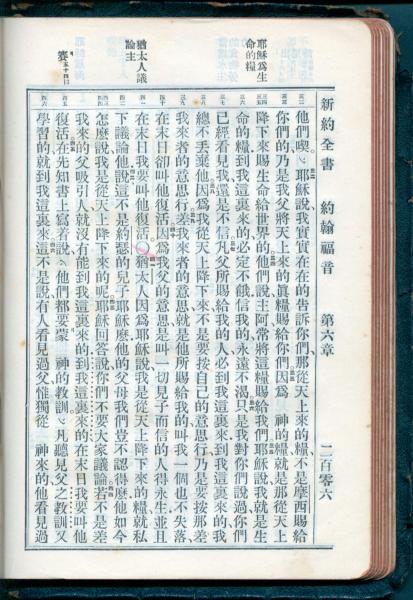 新約全書　約翰福音　第六章　二百零六
耶穌爲生
命的糧
他們喫、耶穌說我實實在在的告訴你們那從天上來的糧不是摩西賜給
你們的乃是我父將天上來的眞糧賜給你們因爲　神的糧就是那從天上
降下來賜生命給世界的他們說主阿常將這糧賜給我們耶穌說我就是生
命的糧到我這裏來的必定不餓信我的永遠不渴只是我對你們說過你們
已經看見我還是不信凡父所賜給我的人必到我這裏來到我這裏來的我
總不丟棄他因爲我從天上降下來不是要按自己的意思行乃是要按那差
我來者的意思行差我來者的意思就是他所賜給我的叫我一個也不失落
在末日卻叫他復活因爲我父的意思是叫一切見子而信的人得永生並且
猶太人議
論主
在末日我要叫他復活〇猶太人因爲耶穌說我是從天上降下來的糧就私
下議論他說這不是約瑟的兒子耶穌麼他的父母我們豈不認得麼他如今
怎麼說我是從天上降下來的呢耶穌回答說你們不要大家議論若不是差
我來的父吸引人就沒有能到我這裏來的到我這裏來的在末日我要叫他
賽五十四
復活在先知書上寫着說、他們都要蒙　神的教訓、凡聽見父之教訓又
學習的就到我這裏來這不是說有人看見過父惟獨從　神來的他看見過